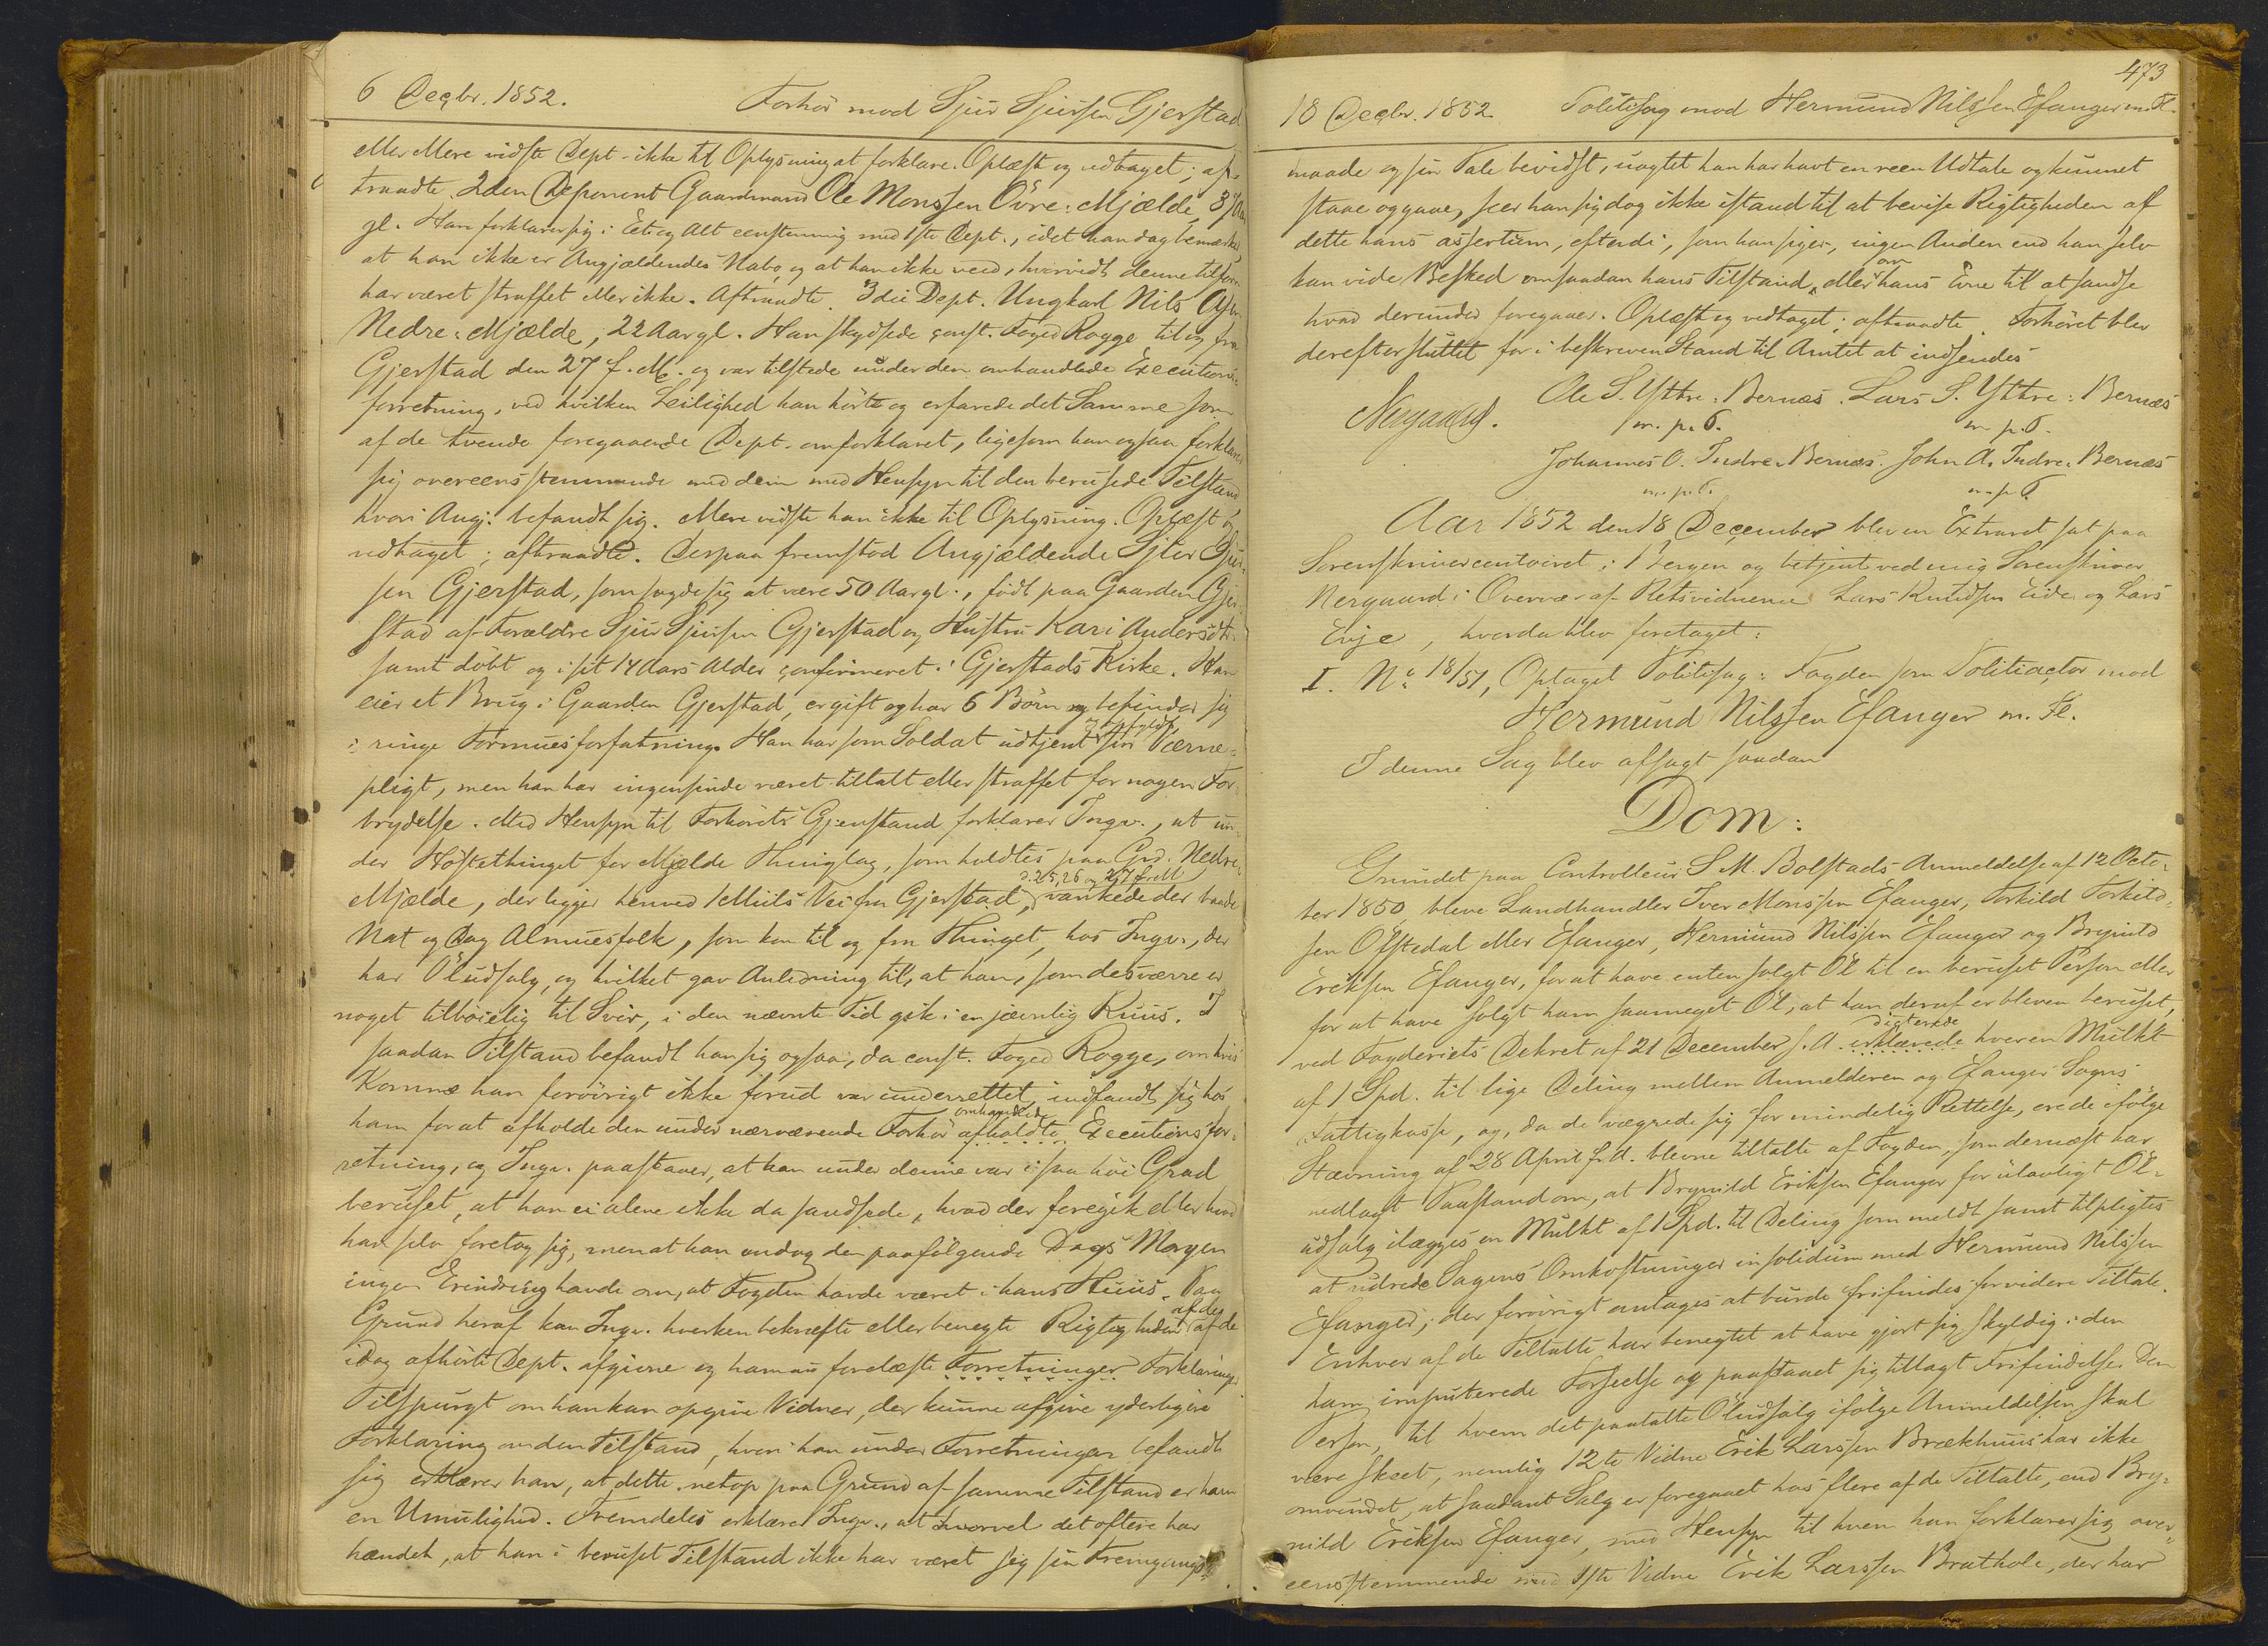 6 Decbr. 1852. Forhör mod Sjur Sjursen Gjerstad
eller Mere vidste Dept. ikke til Oplysning at forklare. Oplæst og vedtaget; af-
traadte. 2den Deponent Gaardmand Ole Monssen Övre-Mjelde, 37 Aar
gl. Han forklarer sig i Eet og Alt eenstemmig med 1ste Dept., idet han dog bemærker
at han ikke er Angjældendes Nabo, og at han ikke veed, hvorvidt denne tilforn
har været straffet eller ikke. Aftraadte. 3die Dept. Ungkarl Nils
Nedre-Mjælde, 22 Aar gl. Han skydsede const. Foged Rogge til og fra
Gjerstad den 27 f. M. og var tilstede under den omhandlede Executions-
forretning, ved hvilken Leilighed han hörte og erfarede det Samme som
af de tvende foregaaende Dept. omforklaret, ligesom han ogsaa forklarer
sig overeensstemmende med dem med Hensyn til den berusede Tilstand
hvori Angj. befandt sig. Mere vidste han ikke til Oplysning. Oplæst og
vedtaget; aftraadte. Derpaa fremstod Angjældende Sjur Sjur-
sen Gjerstad, som sagde sig at være 50 Aar gl., födt paa Gaarden Gjer-
stad af Forældre Sjur Sjursen Gjerstad og Hustru Kari Andersdtr.
samt döbt og i sit 14 Aars Alder confirmeret i Gjerstads Kirke. Han
eier et Brug i Gaarden Gjerstad, er gift og har 6 Börn og befinder sig
i ringe Formuesforfatning. Han har som Soldat udtjent og opfyldt sin Værne-
pligt, men han har ingensinde været tiltalt eller straffet for nogen For-
brydelse. Med Hensyn til Forhörets Gjenstand forklarer Inqv., at un-
der Höstethinget for Mjelde Thinglag, som holdtes paa Grd. Nedre-
Mjælde, der ligger henved 1 Miils Vei fra Gjerstad, d. 25, 26 og 27 f. M. vankede der baade
Nat og Dag Almuesfolk, som kom til og fra Thinget, hos Inqv., der
har Öludsalg, og hvilket gav Anledning til, at han, som desværre er
noget tilböielig til Sviir, i den nævnte Tid gik i en jævnlig Ruus. I
saadan Tilstand befandt han sig ogsaa, da const. Foged Rogge, om hvis
Komme han forövrigt ikke forud var underrettet, indfandt sig hos
ham for at afholde den under nærværende Forhör afholdte omhandlede Executionsfor-
retning, og Inqv. paastaaer, at han under denne var i saa höi Grad
beruset, at han ei alene ikke da sandsede, hvad der foregik eller hvad
han selv foretog sig, men at han endog den paafölgende Dags Morgen
ingen Erindring havde om, at Fogden havde været i hans Huus. Paa
Grund heraf kan Inqv. hverken bekræfte eller benegte Rigtigheden af de af de
idag afhörte Dept. afgivne og ham nu forelæste Forretninger Forklaringer
Tilspurgt om han kan opgive Vidner, der kunne afgive yderligere
Forklaring om den Tilstand, hvori han under Forretningen befandt
sig erklærer han, at dette netop paa Grund af samme Tilstand er ham
en Umulighed. Fremdeles erklærer Inqv., at hvorvel det oftere har
hændet, at han i beruset Tilstand ikke har været sig sin Fremgangs-
473
18 Decbr. 1852. Politisag mod Hermund Nilssen Efanger m. Fl.
maade og sin Tale bevidst, uagtet han har havt en reen Udtale og kunnet
staae og gaae, seer han sig dog ikke istand til at bevise Rigtigheden af
dette hans assertum, efterdi, som han siger, ingen Anden end han selv
kan vide Besked om saadan hans Tilstand, eller om hans Evne til at sandse
hvad derunder foregaaer. Oplæst og vedtaget; aftraadte. Forhöret blev
derefter sluttet for i beskreven Stand til Amtet at indsendes
Nergaard. Ole S. Yttre-Bernæs. Lars S. Yttre-Bernæs
m. p. P. m. p. P.
Johannes O. Indre-Bernæs. John A. Indre-Bernæs
m. p. P. m. p. P.
Aar 1852 den 18 December blev en Extraret sat paa
Sorenskrivercontoiret i Bergen og betjent ved mig Sorenskriver
Nergaard i Overvær af Retsvidnerne Lars Knudsen Eide og Lars
Evje, hvorda blev foretaget:
I. No. 18/51, Optaget Politisag: Fogden som Politiactor mod
Hermund Nilssen Efanger m. Fl.
I denne Sag blev afsagt saadan
Dom:
Grundet paa Controlleur S. M. Bolstads Anmeldelse af 12 Octo-
ber 1850, bleve Landhandler Iver Monssen Efanger, Torkild Torkild-
sen Öfstedal eller Efanger, Hermund Nilssen Efanger og Brynild
Eriksen Efanger, for at have enten solgt Öl til en beruset Person eller
for at have solgt ham saameget Öl, at han deraf er bleven beruset,
ved Fogderiets Dekret af 21 December s. A. erklærede dicterede hver en Mulkt
af 1 Spd. til lige Deling mellem Anmelderen og Efangers Sogns
Fattigkasse, og, da de vægrede sig for mindelig Rettelse, ere de ifölge
Stævning af 28 April f. A. blevne tiltalte af Fogden, som dernæst har
nedlagt Paastand om, at Brynild Eriksen Efanger for ulovligt Öl-
udsalg ilægges en Mulkt af 1 Spd. til Deling som meldt samt tilpligtes
at udrede Sagens Omkostninger in solidum med Hermund Nilssen
Efanger, der forövrigt antages at burde frifindes for videre Tiltale.
Enhver af de Tiltalte har benegtet at have gjort sig skyldig i den
ham imputerede Forseelse og paastaaet sig tillagt Frifindelse. Den
Person, til hvem det paatalte Öludsalg ifölge Anmeldelsen skal
være skeet, nemlig 12te Vidne Erik Larssen Brækhuus har ikke
omvundet, at saadant Salg er foregaaet hos flere af de Tiltalte, end Bry-
nild Eriksen Efanger, med Hensyn til hvem han forklarer sig over-
eensstemmende med 1ste Vidne Erik Larssen Brathole, der har